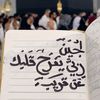 لجين
ربي يفرح قلبك
عن قريب